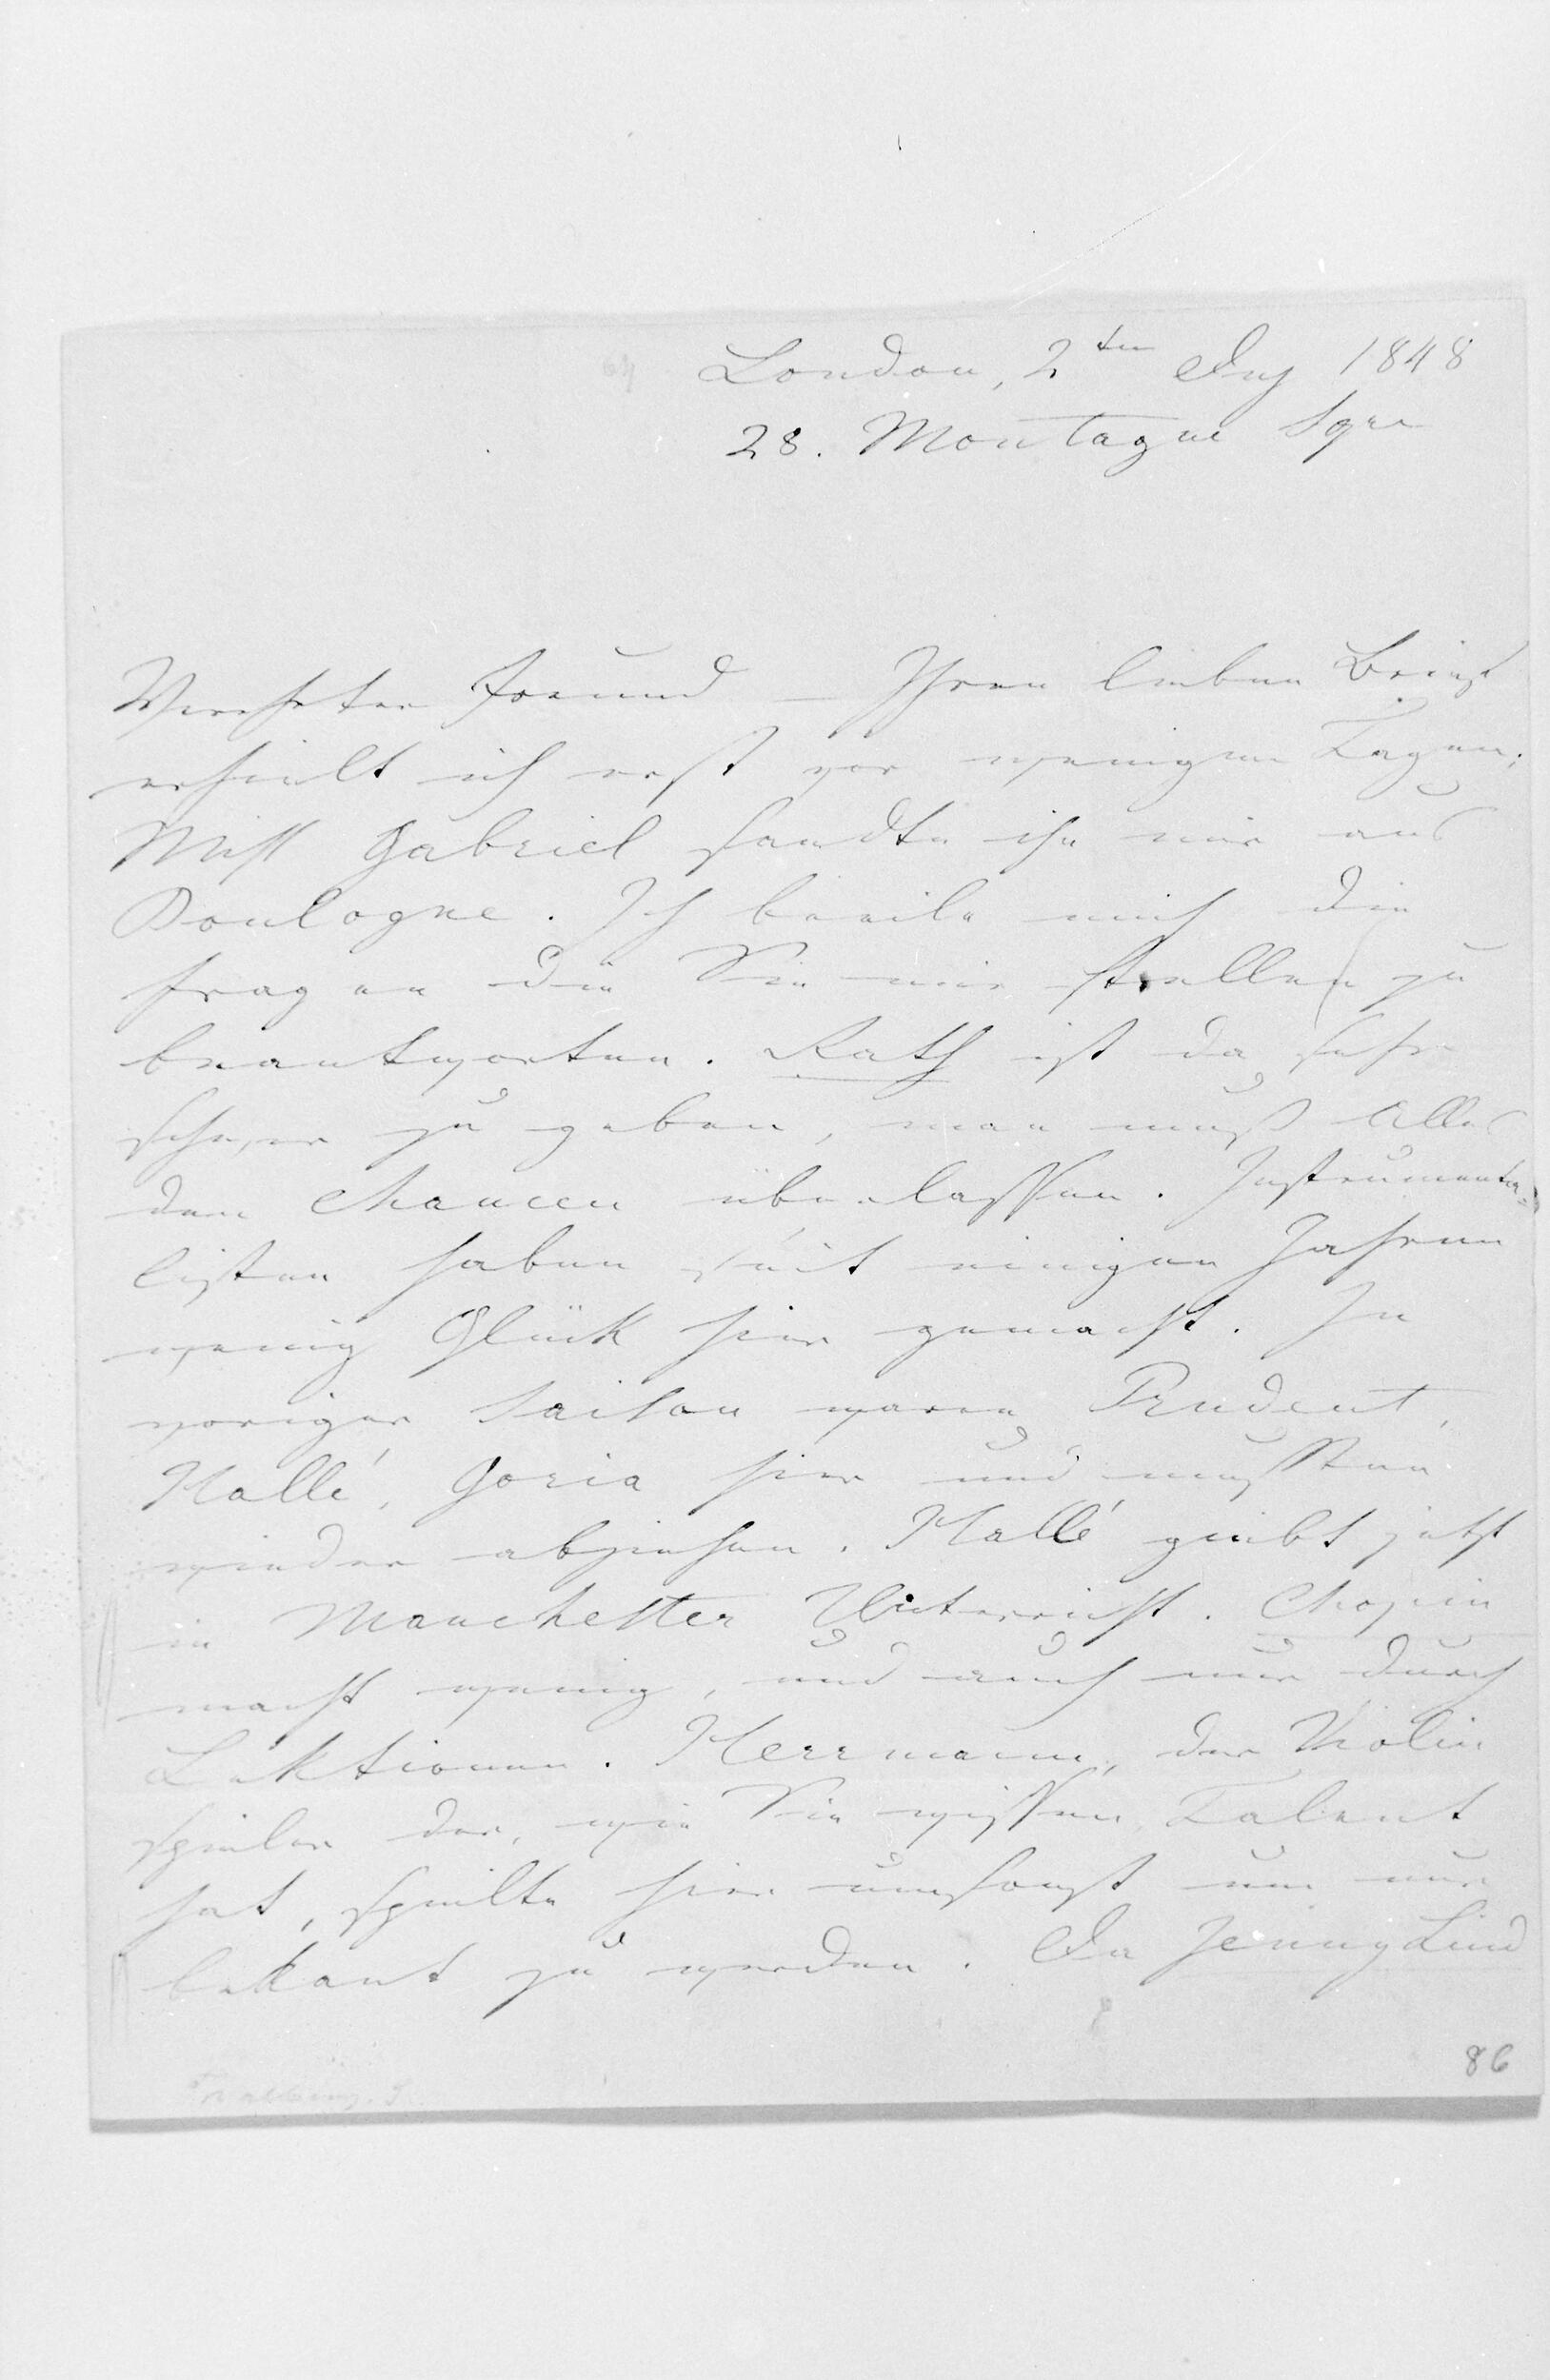 London, 2ten Dez 1848
28. Montague Sqre
Verehrter Freund – Ihren lieben Brief
erhielt ich erst vor wenigen Tagen,
Miss Gabriel sandte ihn mir aus
Boulogne. Ich beeile mich die
Fragen die Sie mir stellen zu
beantworten. Rath ist da sehr
schwer zu geben, man muß Alles
den Chancen überlassen. Instrumenta-
listen haben seit einigen Jahren
wenig Glück hier gemacht. In
voriger Saison waren Prudent,
Hallé, Goria hier und mussten
wieder abziehen. Hallé giebt jetzt
in Manchester Unterricht. Chopin
macht wenig, und auch nur durch
Lektionen. Herrmann, der Violin
spieler der, wie Sie wissen, Talent
hat, spielte hier umsonst um nur
bekant zu werden. Da Jenny Lind
86